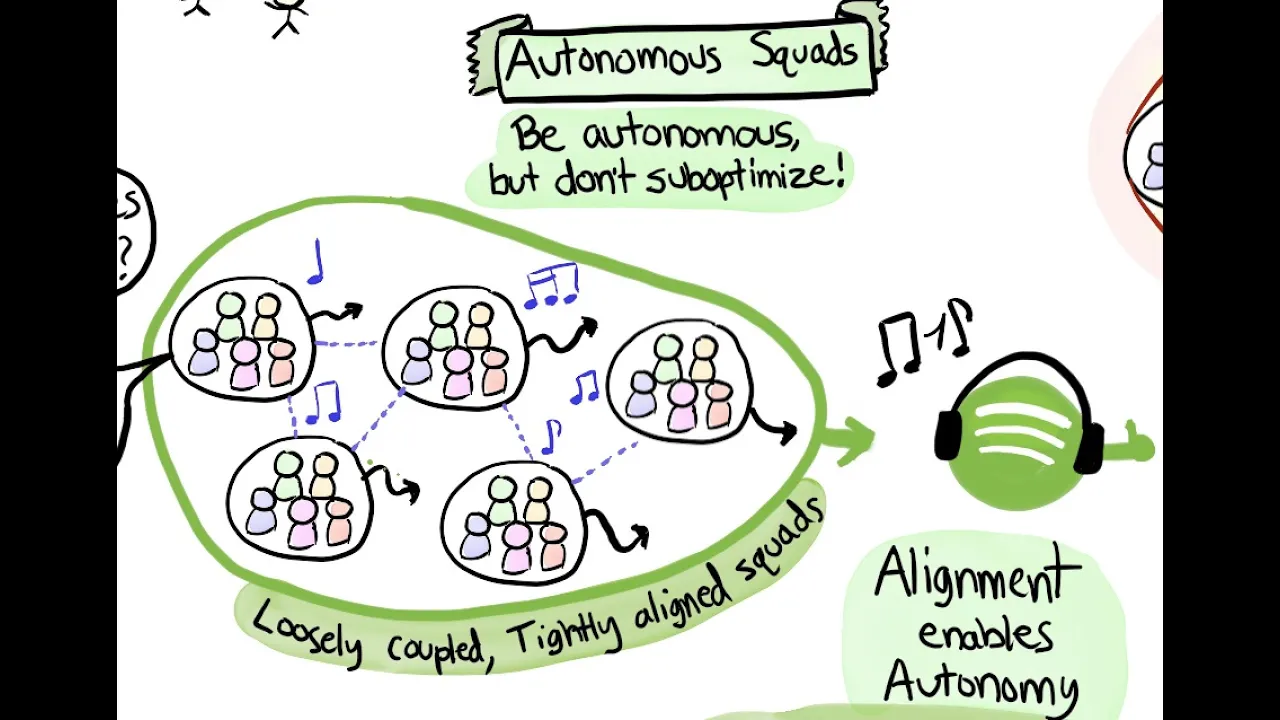 Autonomous Squads
Be autonomous,
but don't suboptimize!
?
Loosely coupled, Tightly aligned squads
Alignment
enables
Autonomy